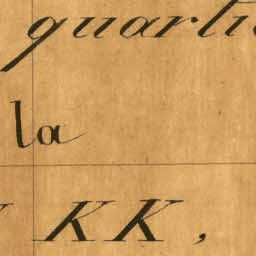 quarti
la
KK,